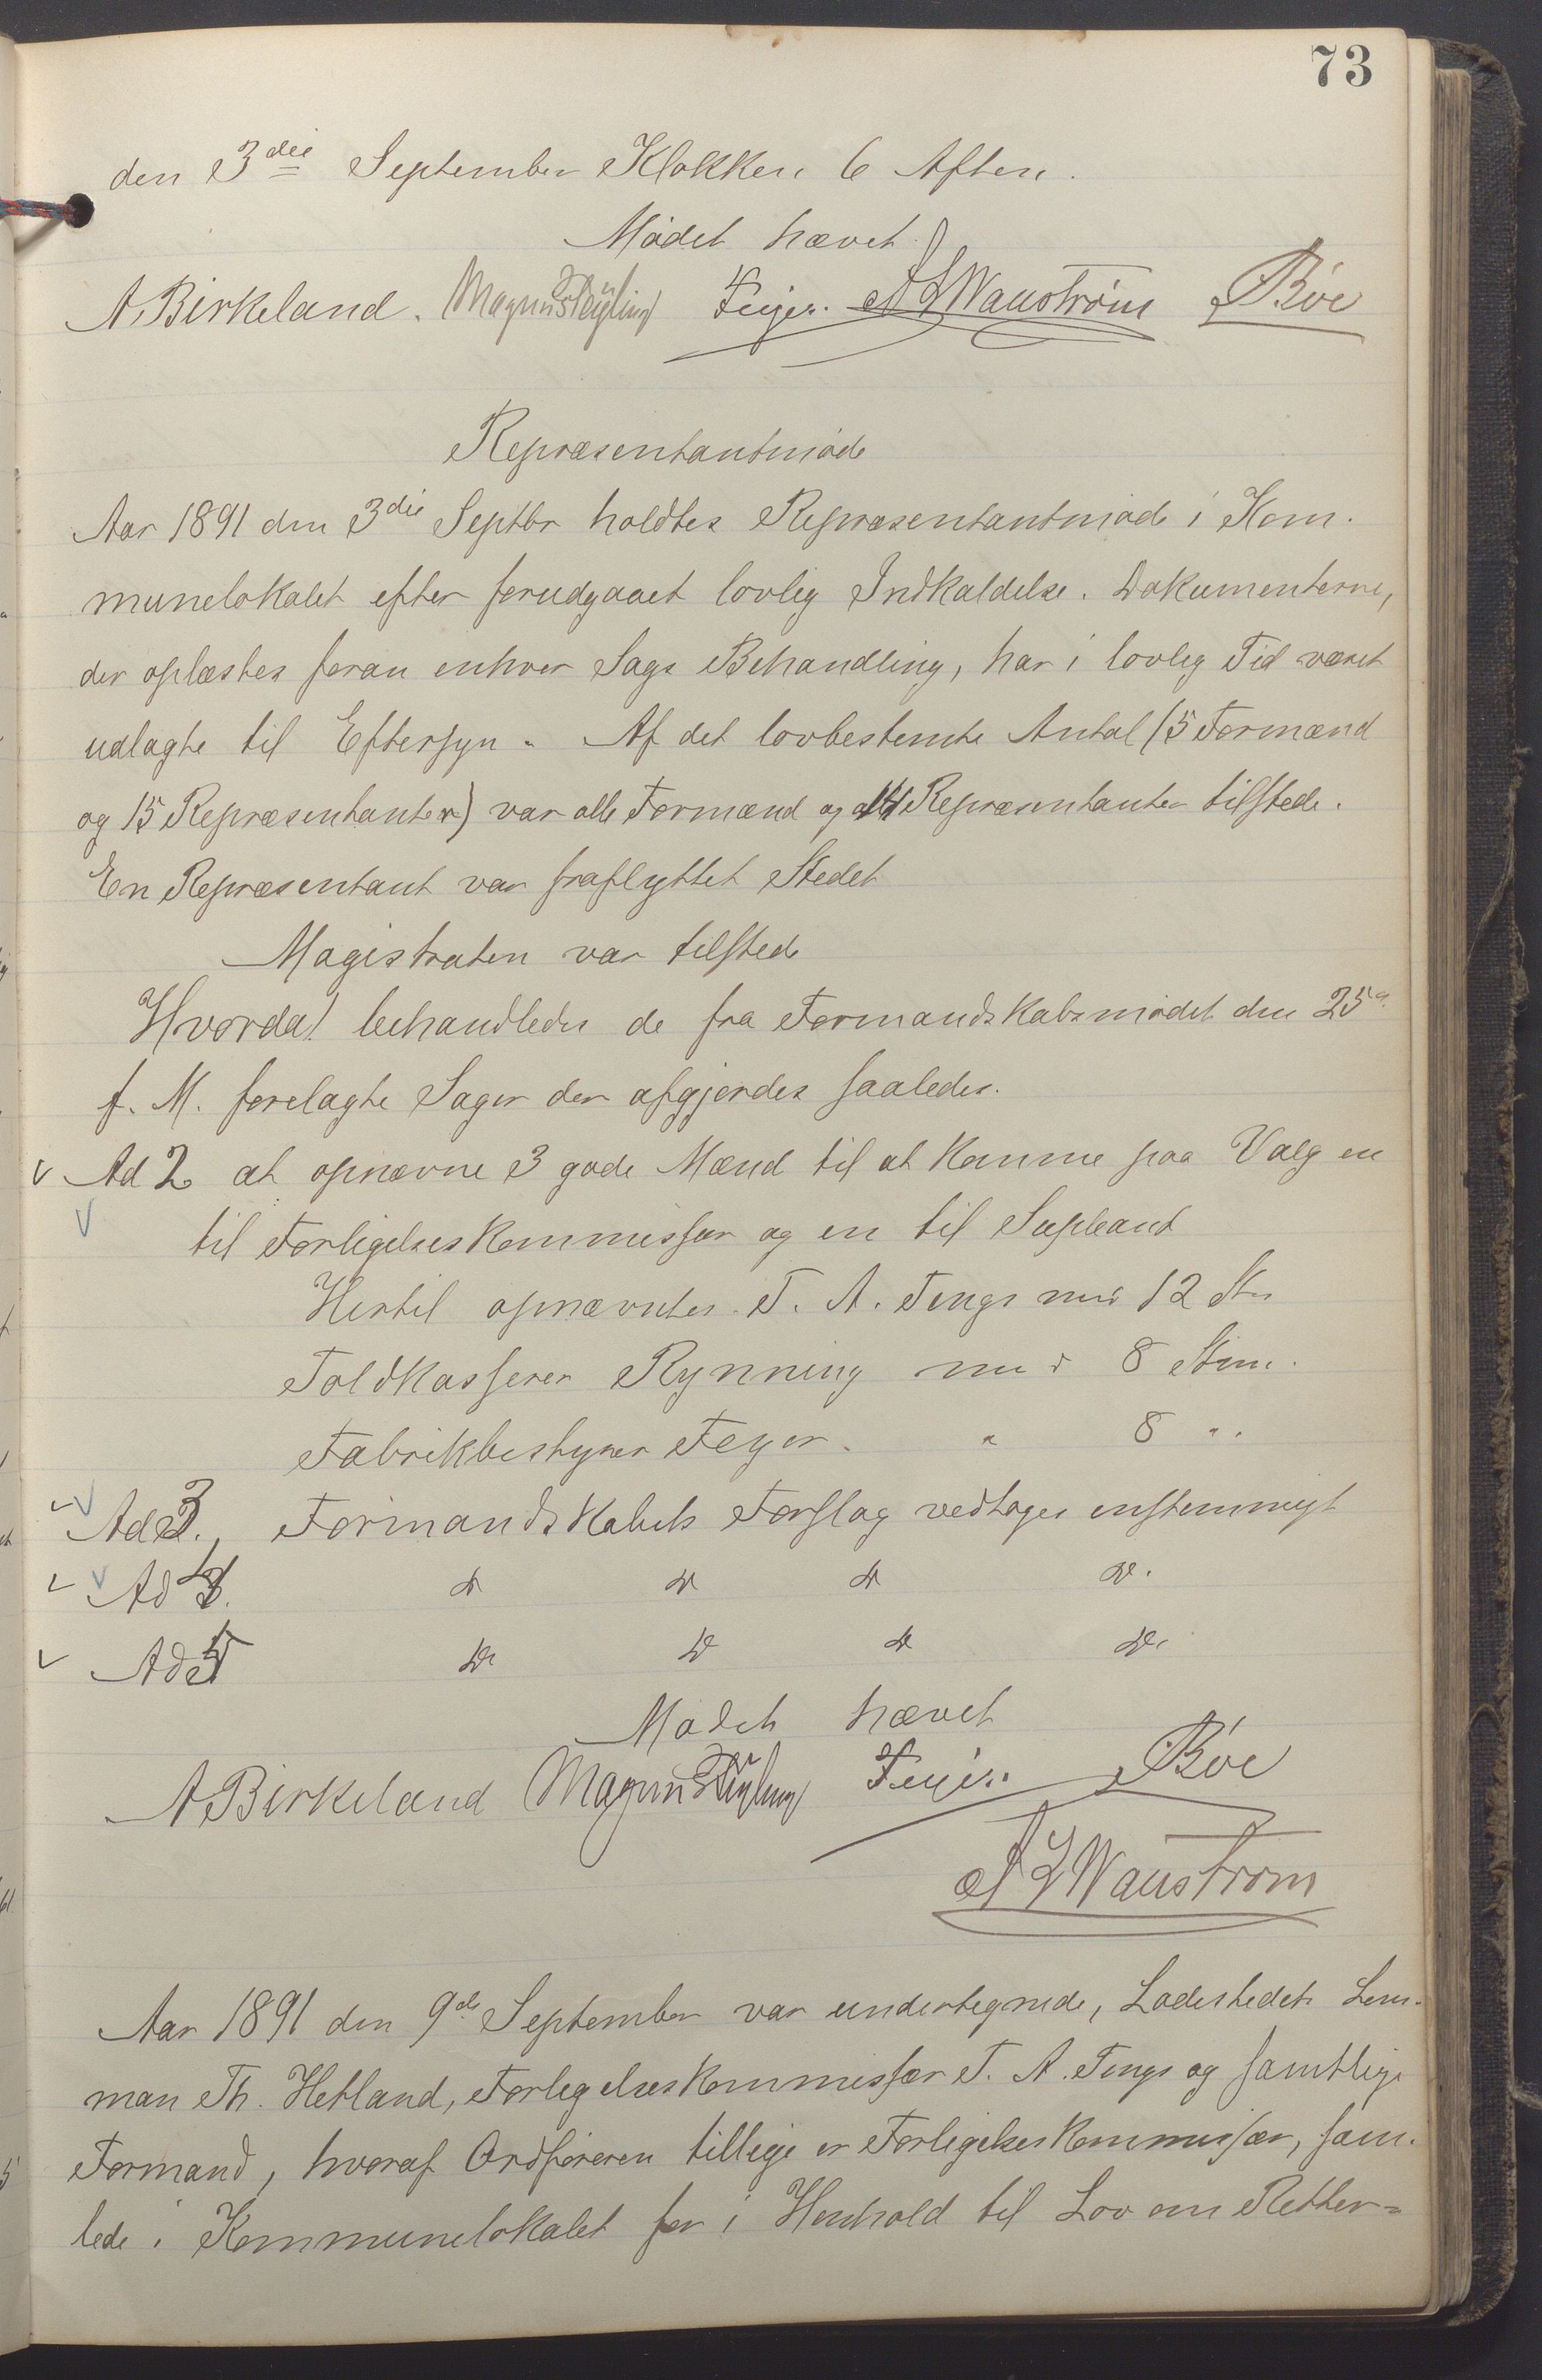 73
den 3die September Klokken 6 Aften.
Mødet hævet.
A. Birkeland. Magnus Feyer. Bøe
Repræsentantmøde
Aar 1891 den 3die Septbr holdtes Repræsentantmøde i Kom-
munelokalet efter forudgaaet lovlig Indkaldelse. Dokumenterne,
der oplæstes foran enhver Sags Behandling, har i lovlig Tid været
udlagte til Eftersyn. Af det lovbestemte Antal (5 Formænd
og 15 Repræsentanter) var alle Formænd og 14 Repræsentanter tilstede.
En Repræsentant var fraflyttet Stedet
Magistraten var tilstede
Hvorda behandledes de fra Formandskabsmødet den 25de
f. M. forelagte Sager der afgjordes saaledes.
Ad 2 at opnævne 3 gode Mænd til at komme paa Valg en
til Forligelseskommissær og en til Supleant
Hertil opnævntes T. A. Tengs med 12 St.
Toldkasserer Rynning med 8 Stem.
Fabrikbestyrer Feyer. " 8 ".
Ad 3. Formandskabets Forslag vedtages enstemmigt
Ad 4. Do Do Do Do.
Ad 5 Do Do Do Do.
Mødet hævet
A Birkeland Magnus Feyer. Bøe
Aar 1891 den 9de September var undertegnede, Ladestedets Lens-
man Th. Hetland, Forligelseskommissær T. A. Tengs og samtlige
Formænd, hvoraf Ordføreren tillige er Forligelseskommissær, sam-
lede i Kommunelokalet for i Henhold til Lov om Retter=